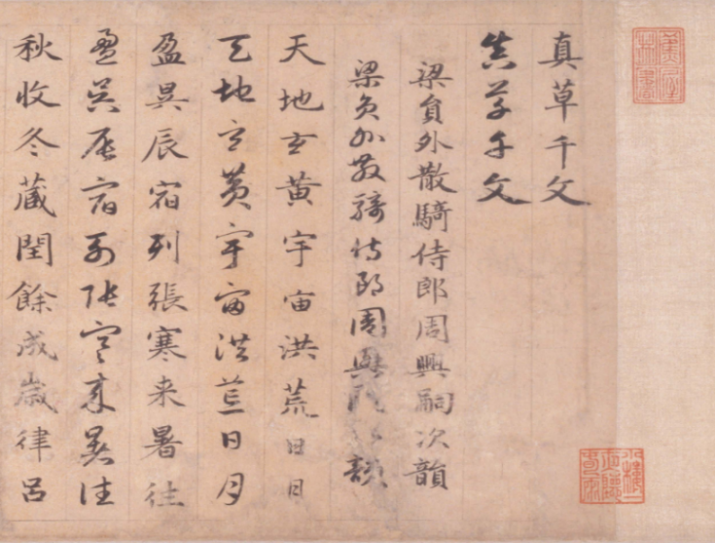 真草千文
真草千文
梁員外散騎侍郎周興嗣次韻
梁員外散騎侍郎周興嗣次韻
天地玄黄宇宙洪荒日月
天地玄黄宇宙洪荒日月
盈昃辰宿列張寒来暑往
盈昃辰宿列張寒来暑往
秋收冬藏閏餘成歲律呂